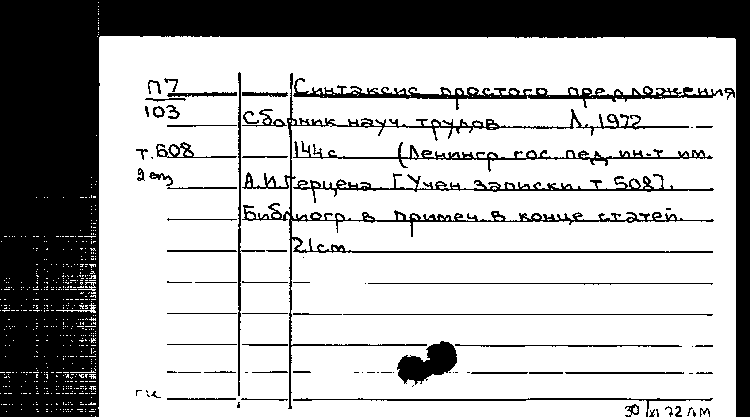 П7 Синтаксис простого предложения
103 Сборник науч. трудов Л., 1972
т. 508 144 с. (Ленингр. гос. пед. ин-т им.
2 экз А.И.Герцена. [Учен. записки. т. 508].
Библиогр. в примеч. в конце статей.
21 см.
30 XI 72